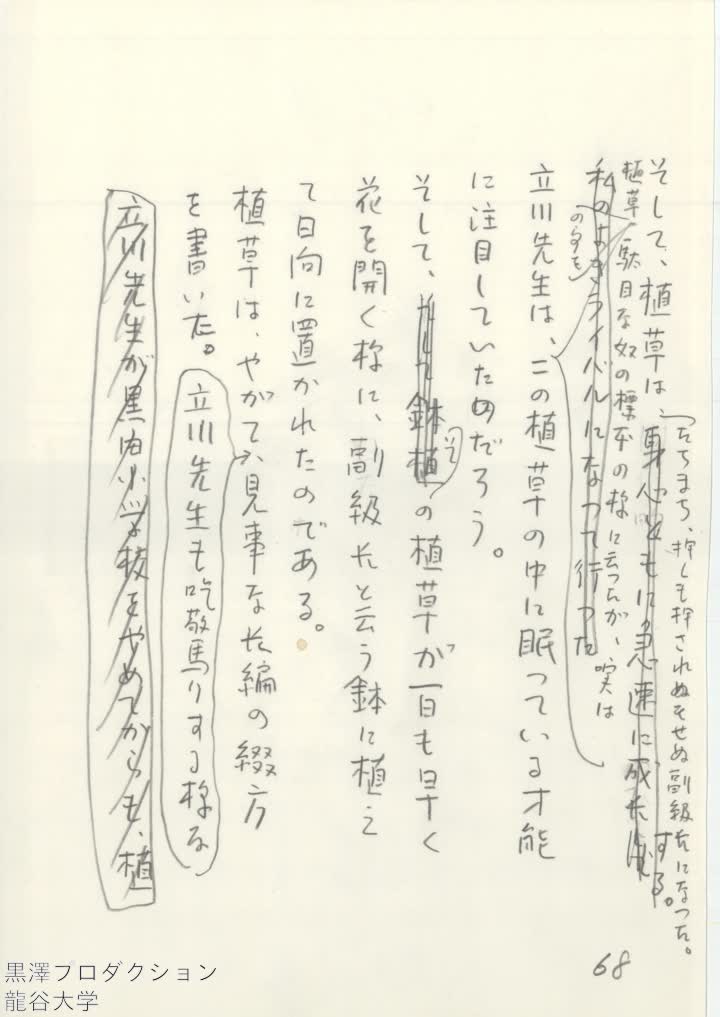 たちまち、押しも押されぬもせぬ副級長になった。
そして、植草は、身心ともに急速に成長する。
植草を駄目な奴の標本の様に云ったが、実は
の名を
私のよきライバルになって行った
立川先生は、この植草の中に眠っている才能
に注目していたのだろう。
そして、そして鉢植の植草が一日も早く
その
花を開く様に、副級長と云う鉢に植え
て日向に置かれたのである。
植草は、やがて、見事な長編の綴方
を書いた。立川先生も吃驚りする様な
立川先生が黒田小学校をやめてからも、植
68
黒澤プロダクション
龍谷大学